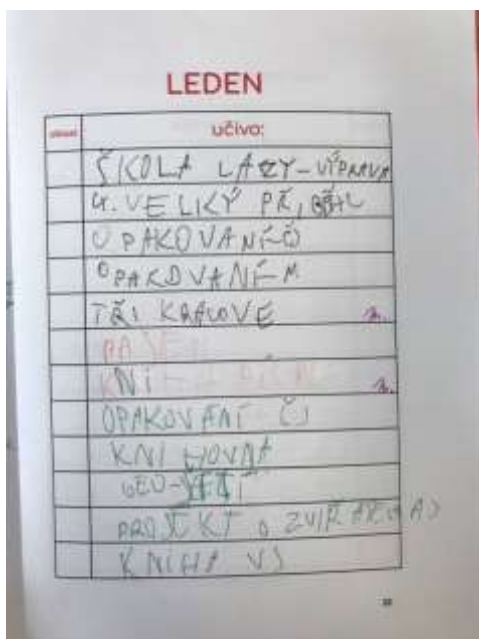 LEDEN
učivo:
ŠKOLA LAZY-VÝPRAVA
4. VELIKÝ PŘÍBĚH
OPAKOVÁNÍ Č
OPAKOVANÍ M
TŘI KRÁLOVÉ
KNI
OPAKOVÁNÍ ČJ
KNIHOVNA
GEO-
PROJEKT O
KNIHA VJ